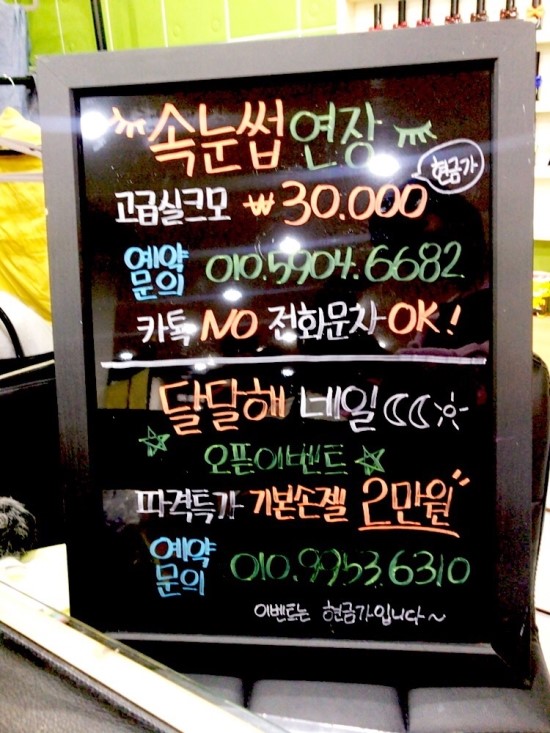 속눈썹 연장
현금가
고급실크모 ₩30.000
예약
문의 010.5904.6682
카톡 NO 전화문자 OK!
달달해 네일
오픈이벤트
파격특가 기본손젤 2만원
예약
문의 010.9953.6310
이벤트는 현금가입니다~